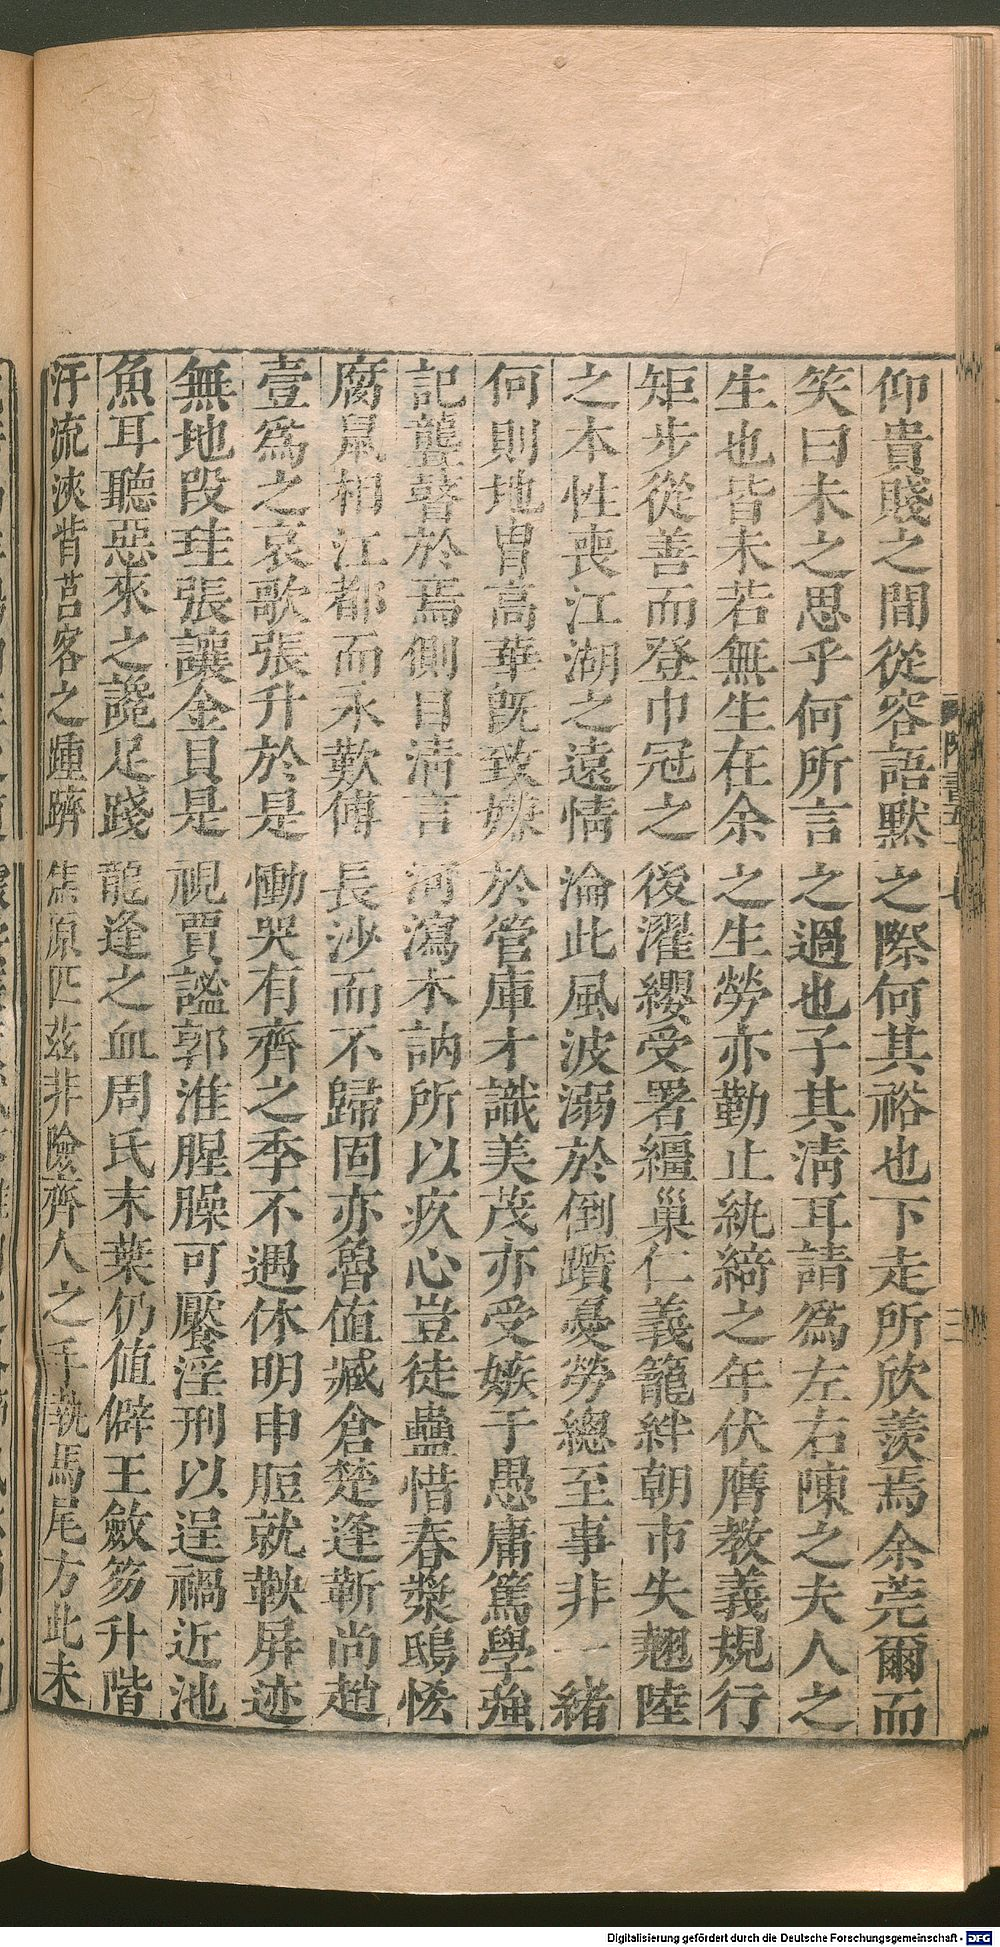 仰貴賤之間從容語默之際何其裕也下走所欣羨焉余莞爾而
笑曰未之思乎何所言之過也子其清耳請為左右陳之夫人之
生也皆未若無生在余之生勞亦勤止紈綺之年伏膺教義規行
矩步從善而登巾冠之後濯纓受署繮巢仁義籠絆朝市失翹陸
之本性喪江湖之遠情淪此風波溺於倒躓憂勞總至事非一緒
何則地冑高華旣致嫌於管庫才識美茂亦受嫉于愚庸篤學強
記聾瞽於焉側目清言河瀉木訥所以疚心豈徒蠱惜春漿鴟恡
腐鼠相江都而永歎傅長沙而不歸固亦魯値臧倉楚逢靳尚趙
壹為之哀歌張升於是慟哭有齊之季不遇休明申脰就鞅屏迹
無地段珪張讓金貝是視賈謐郭淮腥臊可饜淫刑以逞禍近池
魚耳聽惡來之讒足踐龍逢之血周氏末葉仍値僻王斂笏升階
汗流浹背莒客之踵躋焦原匹茲非險齊人之手執馬尾方此未
Digitalisierung gefördert durch die Deutsche Forschungsgemeinschaft - DFG